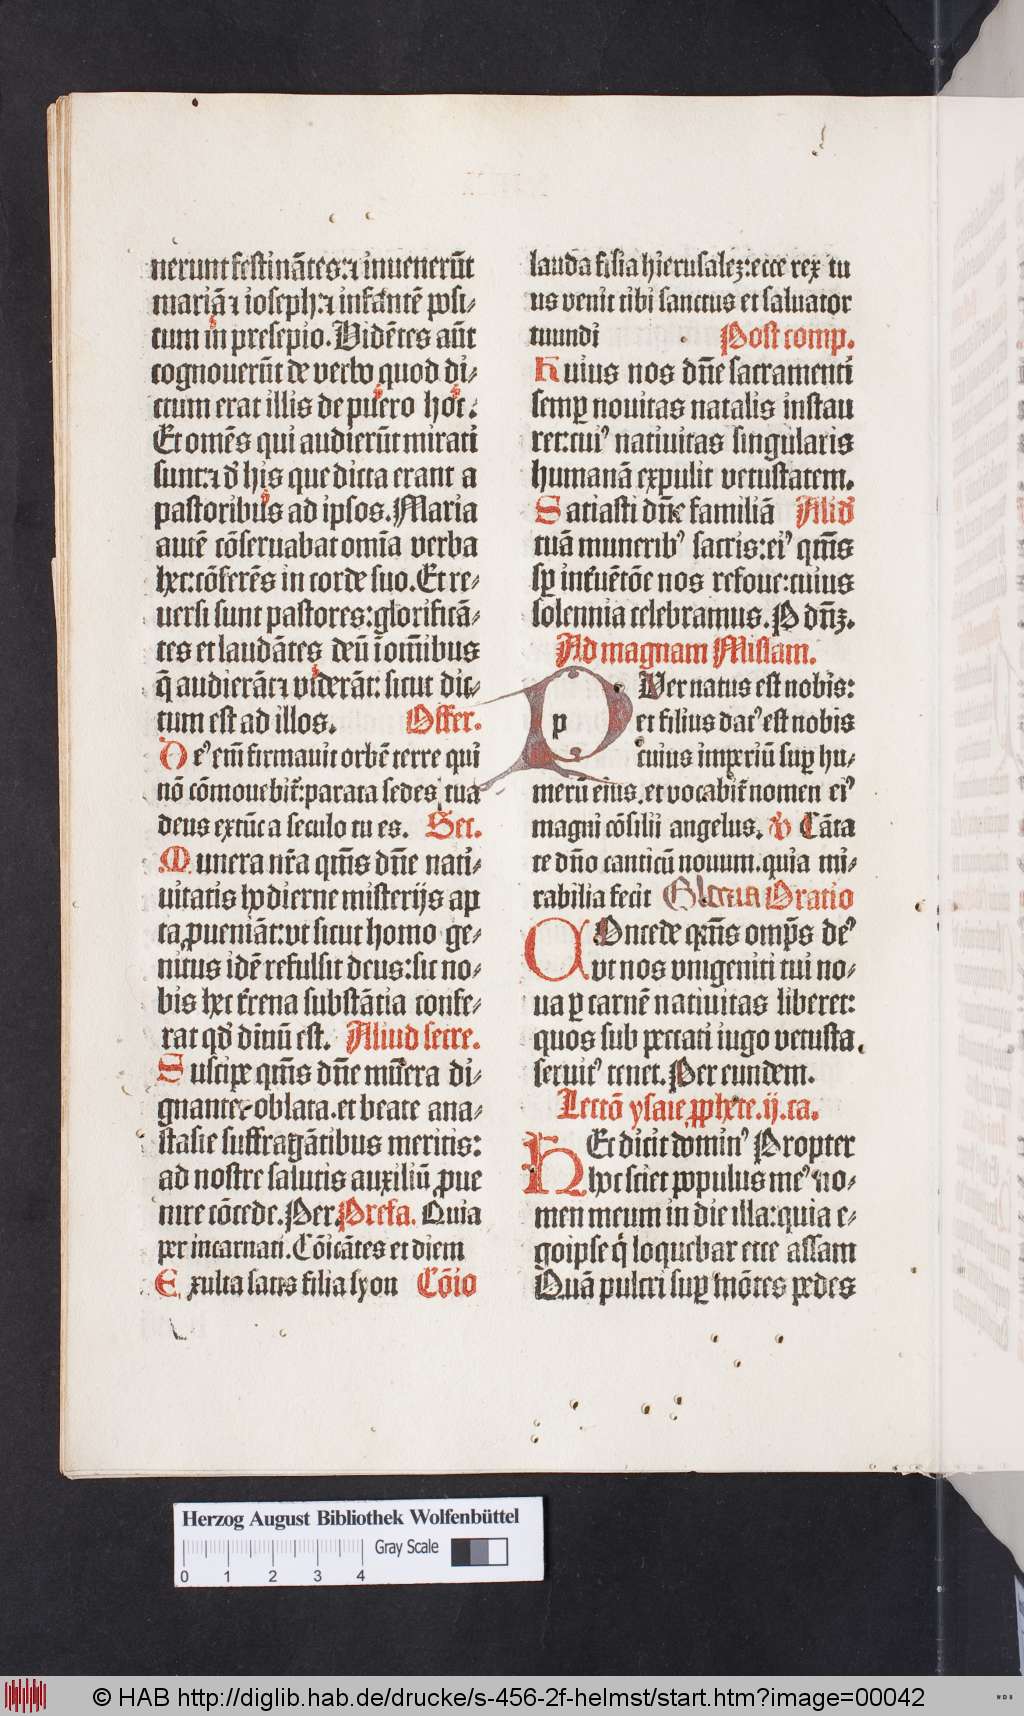 nerunt festinãtes:⁊ inuenerũt
mariã ⁊ ioseph:⁊ infantẽ posi-
tum in presepio. Vidẽtes aũt
cognouerũt de verbo quod di-
ctum erat illis de puero hoc:
Et omẽs qui audierũt mirati
sunt:⁊ d' his que dicta erant a
pastoribus ad ipsos. Maria
autẽ cõseruabat om̃ia verba
hec:cõferẽs in corde suo. Et re-
uersi sunt pastores:glorificã-
tes et laudãtes deũ ĩ om̃ibus
q̃ audierãt ⁊ viderãt: sicut dic-
tum est ad illos. Offer.
De' em̃ firmauit orbẽ terre qui
nõ cõmouebit̃:parata sedes tua
deus extũc a seculo tu es. Sec.
Munera nr̃a qm̃s dñe nati-
uitatis hodierne misterijs ap
ta ꝓueniãt:vt sicut homo ge-
nitus idẽ refulsit deus:sic no-
bis hec t̃rena substãtia confe-
rat qd' diuinũ est. Aliud secre.
Suscipe qm̃s dñe mũera di-
gnanter oblata.et beate ana-
stasie suffragãtibus meritis:
ad nostre salutis auxiliũ ꝓue
nire cõcede. Per. Prefa. Quia
per incarnati. Cõicãtes et diem
Exulta satis filia syon Cõio
lauda filia hierusalez:ecce rex tu
us venit tibi sanctus et saluator
mundi Post comp.
Huius nos dñe sacramenti
semꝑ nouitas natalis instau
ret:cui' natiuitas singularis
humanã expulit vetustatem.
Saciasti dñe familiã Aliud
tuã munerib' sacris:ei' qm̃s
sꝑ interuẽtõe nos refoue:cuius
solennia celebramus. P dñz.
Ad magnam Missam.
p
PVer natus est nobis:
et filius dat' est nobis
cuius imperiũ suꝑ hu-
merũ eius.et vocabit̃ nomen ei'
magni cõsilii angelus. ps Cãta
te dño canticũ nouum.quia mi-
rabilia fecit Gloria Oratio
COncede qm̃s omp̃s de'
vt nos vnigeniti tui no-
ua ꝑ carnẽ natiuitas liberet:
quos sub peccati iugo vetusta
seruit' tenet. Per eundem.
Lectõ ysaie ꝓphete.ij.ca.
HEc dicit domin' Propter
hoc sciet populus me' no-
men meum in die illa:quia e-
go ipse q̃ loquebar ecce assum
Quã pulcri suꝑ mõtes pedes
Herzog August Bibliothek Wolfenbüttel
Gray Scale
0 1 2 3 4
© HAB http://diglib.hab.de/drucke/s-456-2f-helmst/start.htm?image=00042